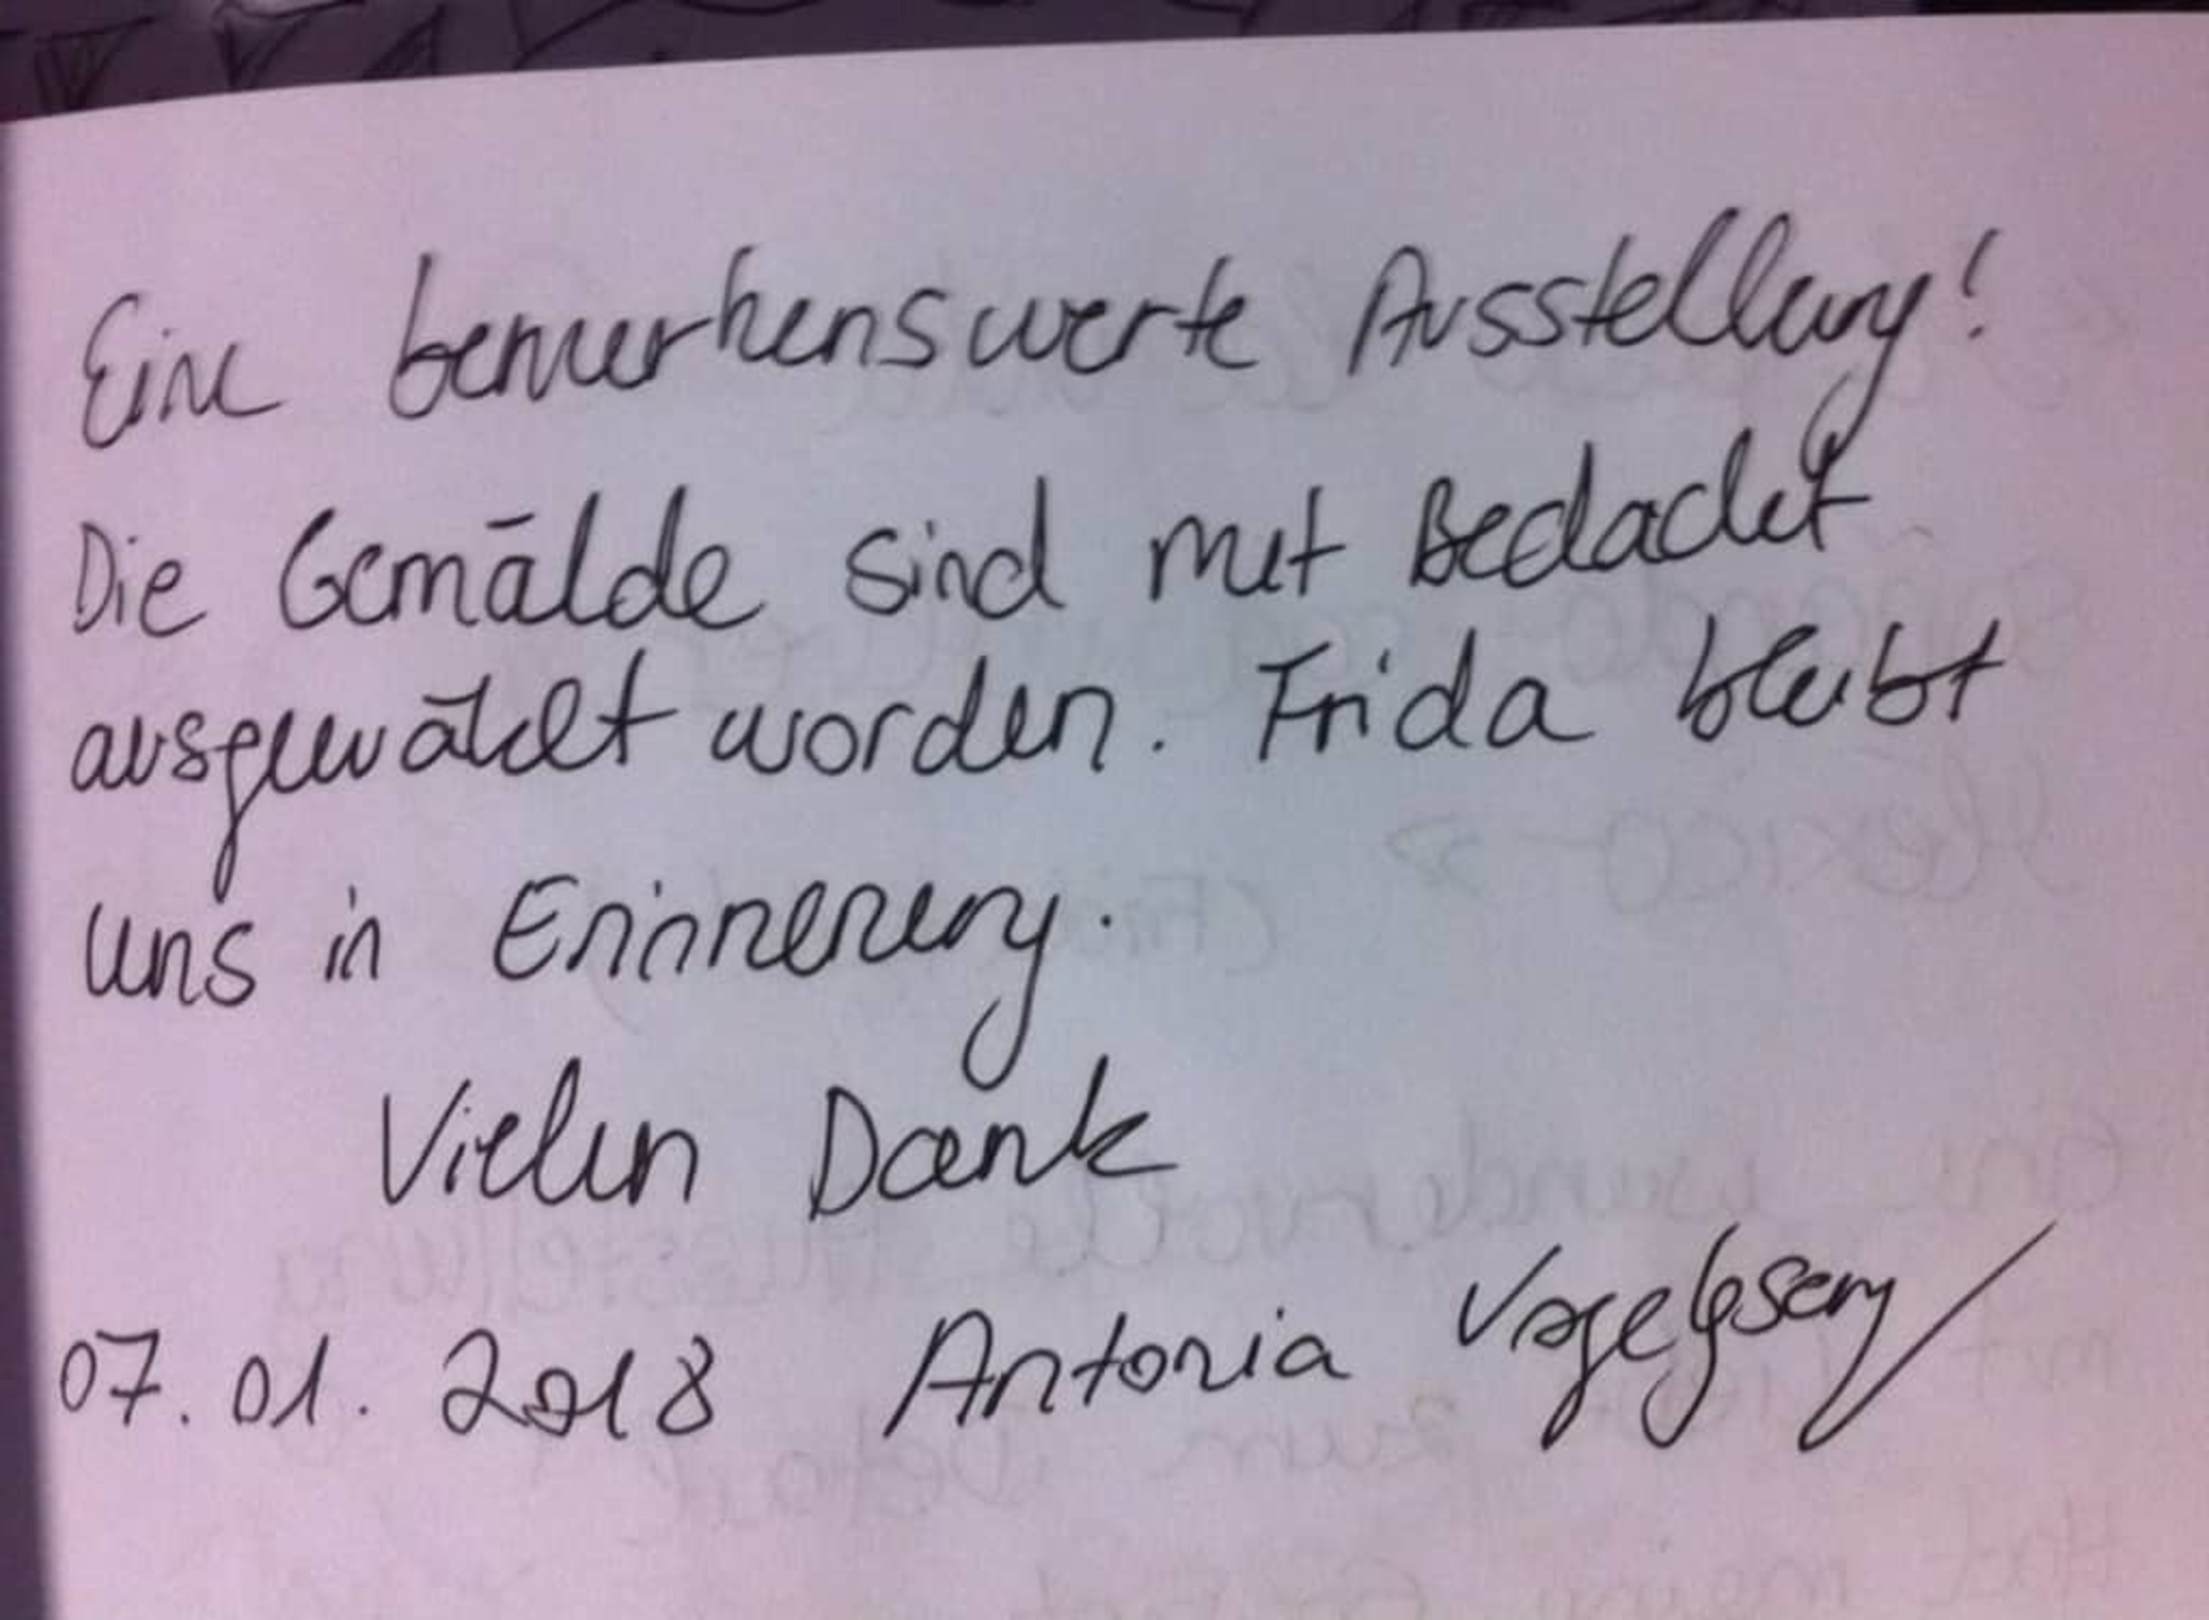 Eine bemerkenswerte Ausstellung!
Die Gemälde sind mit Bedacht
ausgewählt worden. Frida bleibt
uns in Erinnerung.
Vielen Dank
07.01.2018 Antonia Vogelgsang